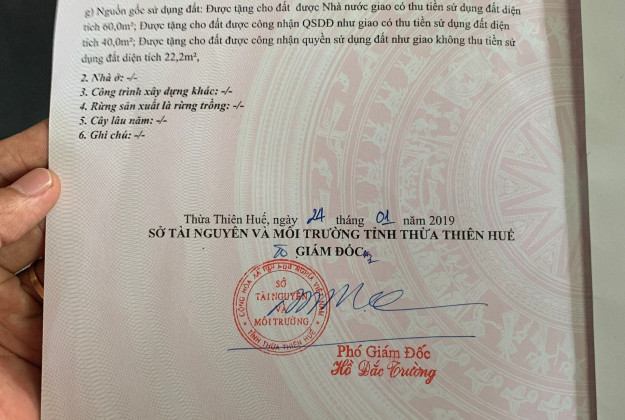 g) Nguồn gốc sử dụng đất: Được tặng cho đất được Nhà nước giao có thu tiền sử dụng đất diện
tích 60,0m²; Được tặng cho đất được công nhận QSDĐ như giao có thu tiền sử dụng đất diện
tích 40,0m²; Được tặng cho đất được công nhận quyền sử dụng đất như giao không thu tiền sử
dụng đất diện tích 22,2m²,
2. Nhà ở: -/-
3. Công trình xây dựng khác: -/-
4. Rừng sản xuất là rừng trồng: -/-
5. Cây lâu năm: -/-
6. Ghi chú: -/-
Thừa Thiên Huế, ngày 24 tháng 01 năm 2019
SỞ TÀI NGUYÊN VÀ MÔI TRƯỜNG TỈNH THỪA THIÊN HUẾ
GIÁM ĐỐC
CỘNG HÒA XÃ HỘI CHỦ NGHĨA VIỆT NAM
SỞ
TÀI NGUYÊN
VÀ
MÔI TRƯỜNG
TỈNH THỪA THIÊN HUẾ
Phó Giám Đốc
Hồ Đắc Trường